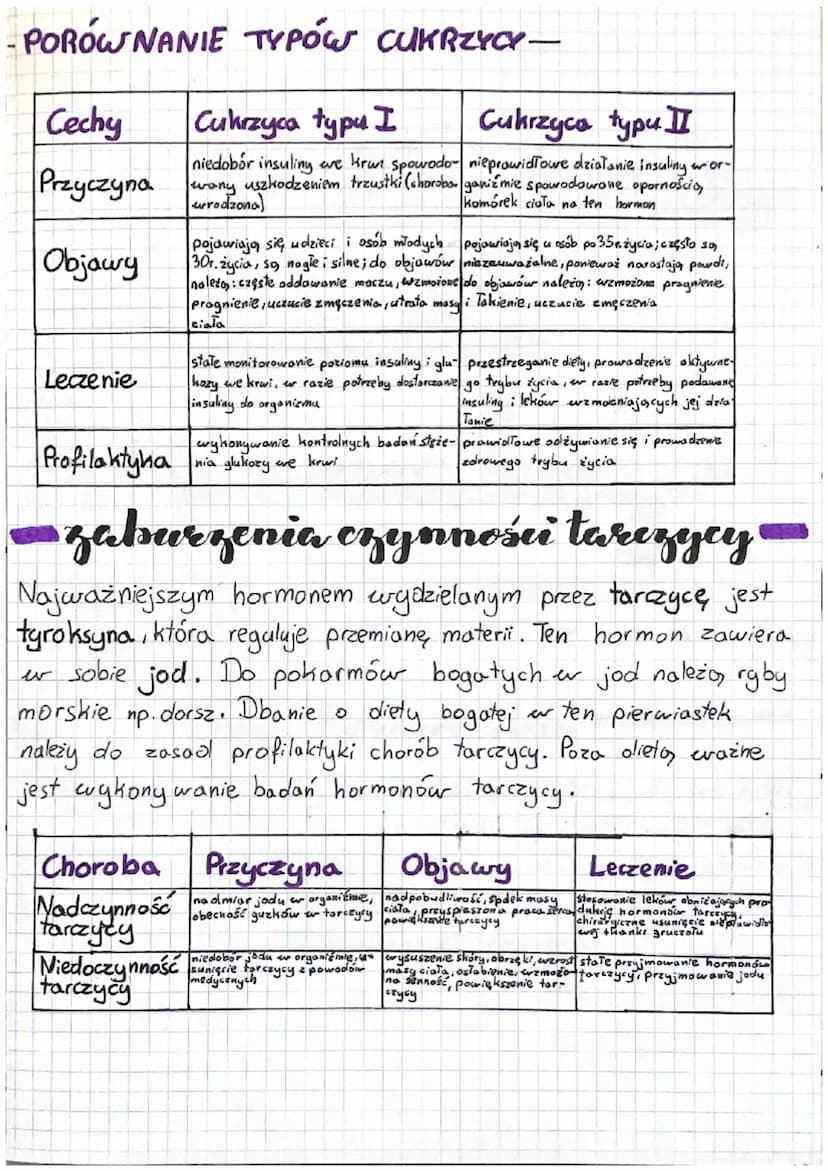 - PORÓWNANIE TYPÓW CUKRZYCY —
Cechy
Cukrzyca typu I
Cukrzyca typu II
Przyczyna
niedobór insuliny we krwi spowodo-
wany uszkodzeniem trzustki (choroba
wrodzona)
nieprawidłowe działanie insuliny w or-
ganiźmie spowodowane opornością
komórek ciała na ten hormon
Objawy
pojawiają się u dzieci i osób młodych
30r. życia, są nagłe i silne; do objawów
należą: częste oddawanie moczu, wzmożone
pragnienie, uczucie zmęczenia, utrata masy
ciała
pojawiają się u osób po 35r. życia; często są
niezauważalne, ponieważ narastają powoli,
do objawów należą: wzmożone pragnienie
i łaknienie, uczucie zmęczenia
Leczenie
stałe monitorowanie poziomu insuliny i glu-
kozy we krwi, w razie potrzeby dostarczanie
insuliny do organizmu
przestrzeganie diety, prowadzenie aktywne-
go trybu życia, w razie potrzeby podawane
insuliny i leków wzmacniających jej dzia-
łanie
Profilaktyka
wykonywanie kontrolnych badań stęże-
nia glukozy we krwi
prawidłowe odżywianie się i prowadzenie
zdrowego trybu życia
zaburzenia czynności tarczycy
Najważniejszym hormonem wydzielanym przez tarczycę jest
tyroksyna, która reguluje przemianę materii. Ten hormon zawiera
w sobie jod. Do pokarmów bogatych w jod należą ryby
morskie np. dorsz. Dbanie o diety bogatej w ten pierwiastek
należy do zasad profilaktyki chorób tarczycy. Poza dietą ważne
jest wykonywanie badań hormonów tarczycy.
Choroba
Przyczyna
Objawy
Leczenie
Nadczynność
tarczycy
nadmiar jodu w organiźmie,
obecność guzków w tarczycy
nadpobudliwość, spdek masy
ciała, przyspieszona praca serca,
powiększenie tarczycy
stosowanie leków obniżających pro
dukcję hormonów tarczycy,
chirurgiczne usunięcie nieprawidło
wej tkanki gruczołu
Niedoczynność
tarczycy
niedobór jodu w organiźmie, u-
sunięcie tarczycy z powodów
medycznych
wysuszenie skóry, obrzęki, wzrost
masy ciała, osłabienie, wzmożo-
na senność, powiększenie tar-
czycy
stałe przyjmowanie hormonów
tarczycy, przyjmowanie jodu